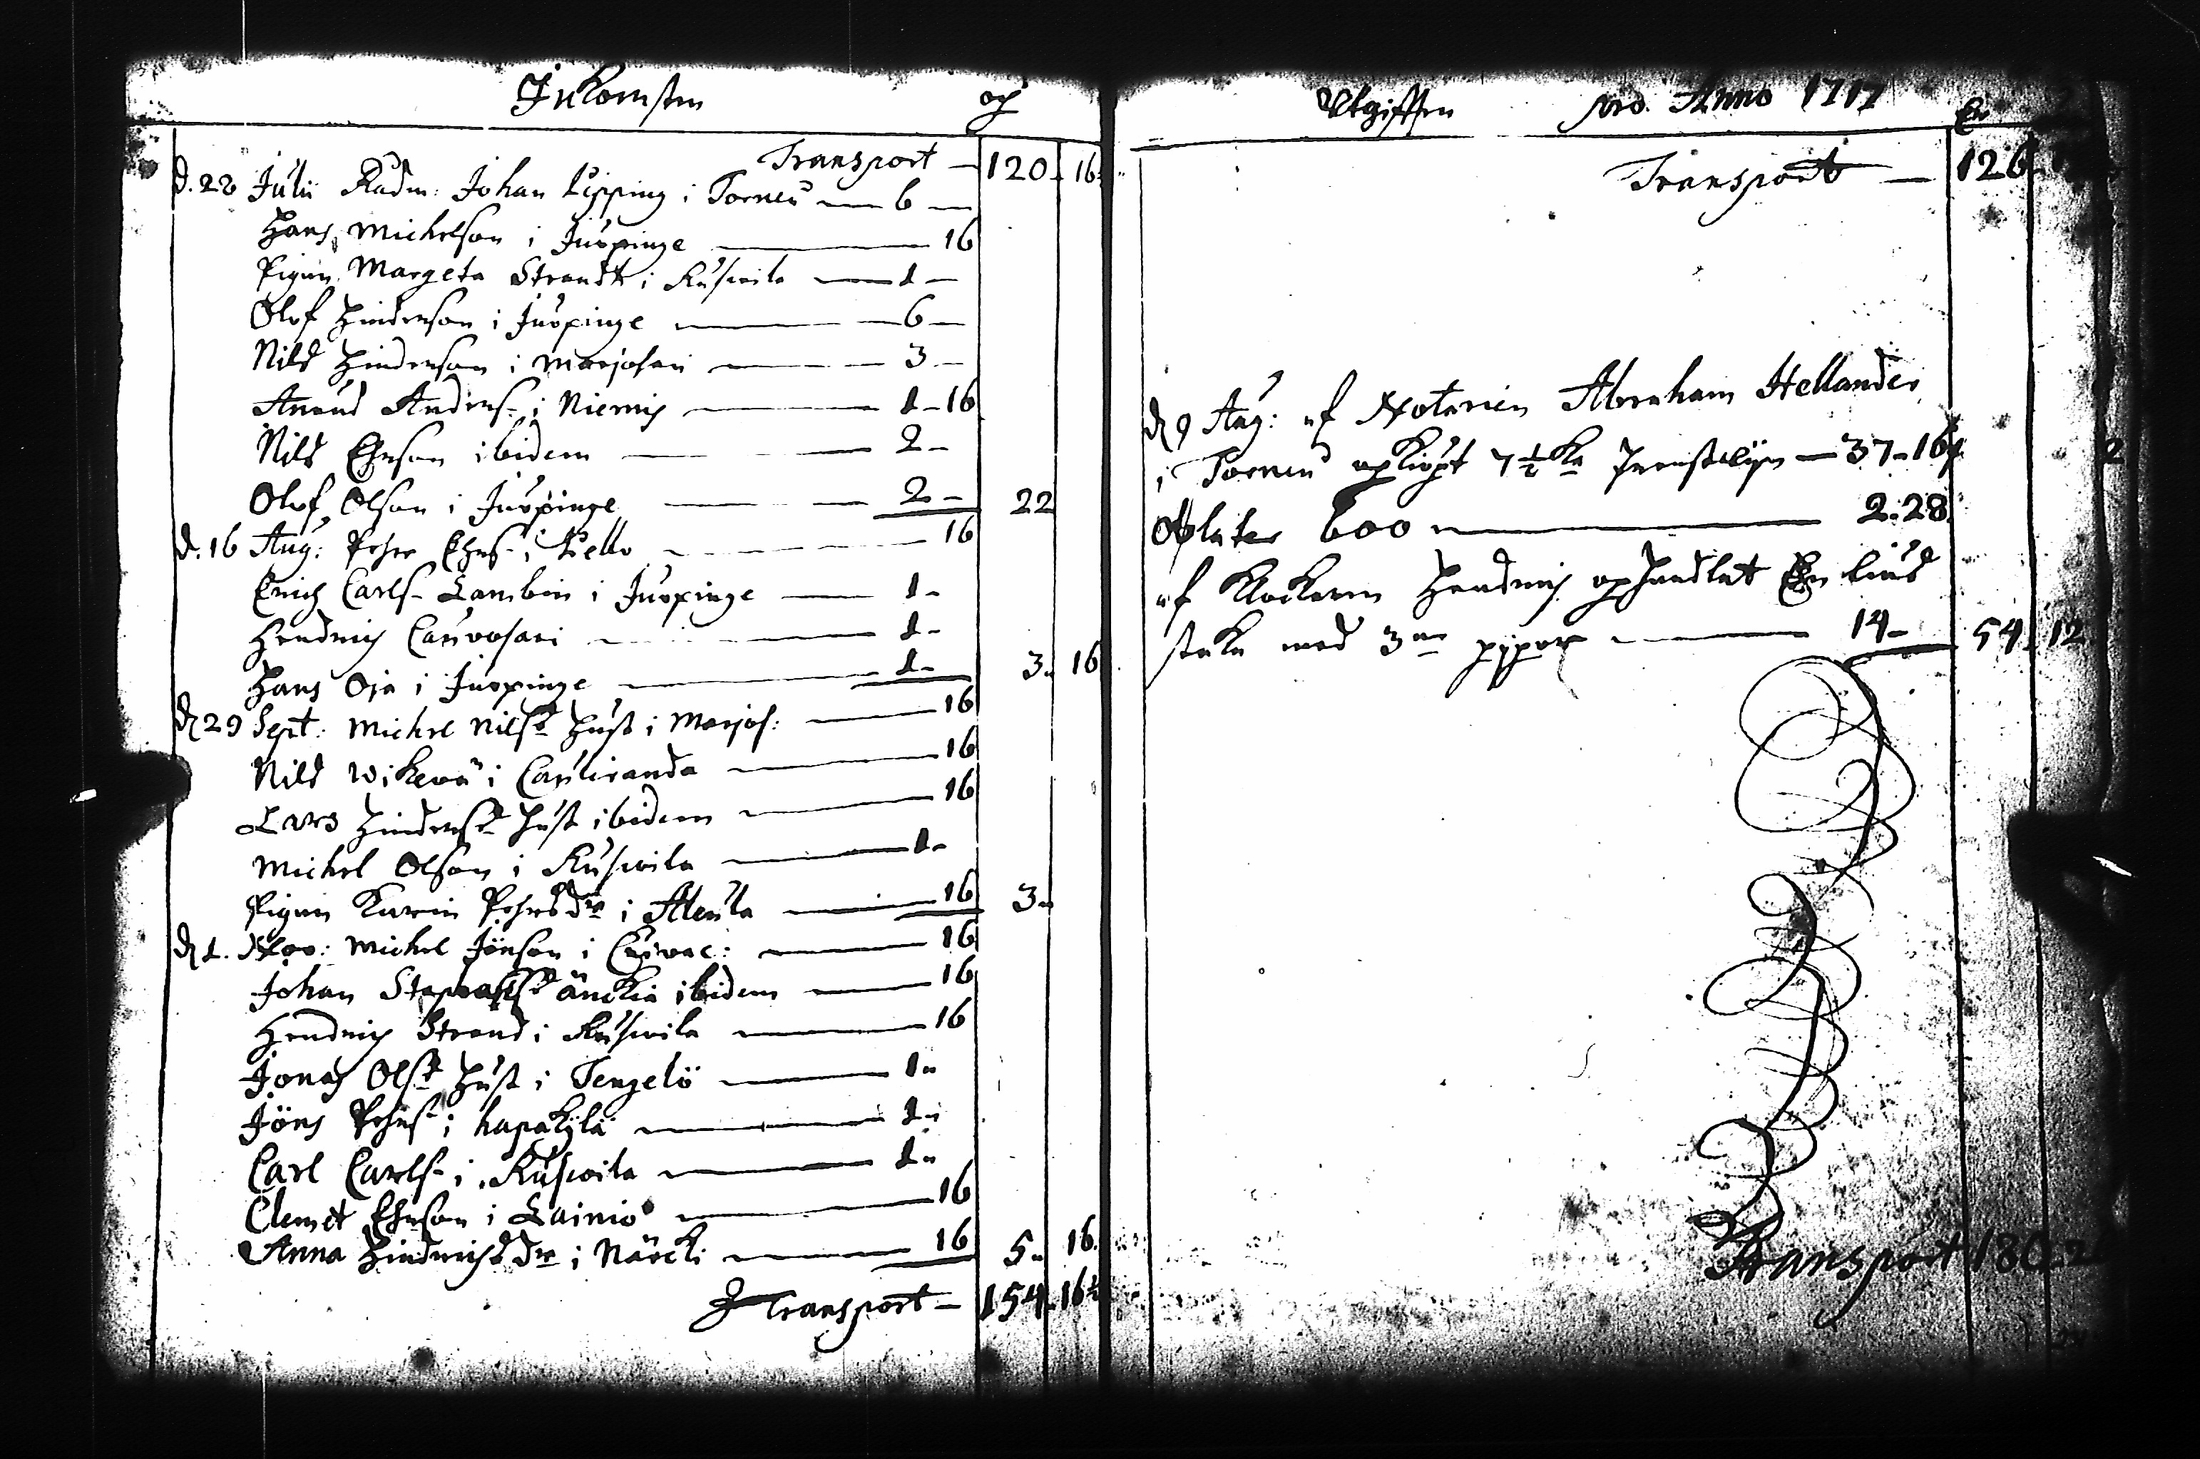 Inkomsten och
Transport — 120 16
d. 28 Julii Radm: Johan Lipping i Torneå — 6 —
Hans Michelson i Juopinge — 16
Pigan Margeta Strandt i Ruskoila — 1 —
Olof Hinderson i Juopinge — 6 —
Nils Hinderson i Marjosari — 3 —
Anund Anders: i Niemis — 1 — 16
Nils Ehrson ibidem — 2 —
Olof Olson i Juopinge — 2 — 22
d. 16 Aug: Pehr Ehrs: i Pello — 16
Erich Carls: Lambin i Juopinge — 1 —
Hendrich Cauvosari — 1 —
Hans Oja i Juopinge — 1 — 3 16
d 29 Sept: Michel Nilss Hust i Marjos: — 16
Nils Wikevä i Cauliranda — 16
Lars Hinderss Hust ibidem — 16
Michel Olson i Ruskoila — 1 —
Pigan Karin Pehrsdr i Alcula — 16 3
d 1. Nov: Michel Jönson i — 16
Johan änckia ibidem — 16
Hendrich Strand i Ruskoila — 16
Jonas Olss Hust i Tengelö — 1
Jöns Pehrs: i hapakylä — 1
Carl Carls: i Ruskoila — 1
Clemet Ehrson i Lainio — 16
Anna Hindrichsdr i Närcki — 16 5 16
Transport — 154 16½
Utgifften pro Anno 1717
Transport — 126
d 9 Aug: af Notarien Abraham Hellander
i Torneå opkiöpt 7½ — 37-16
Oblater 600 — 2:28
af Klockaren Hendrich ophandlat En lius
staka med 3ne pypor — 14 — 54 12
Transport 180